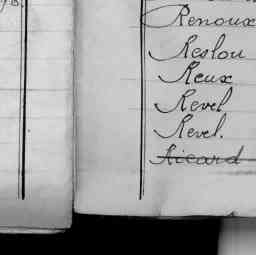 Renoux
Reslou
Reux
Revel
Revel.
Ricard